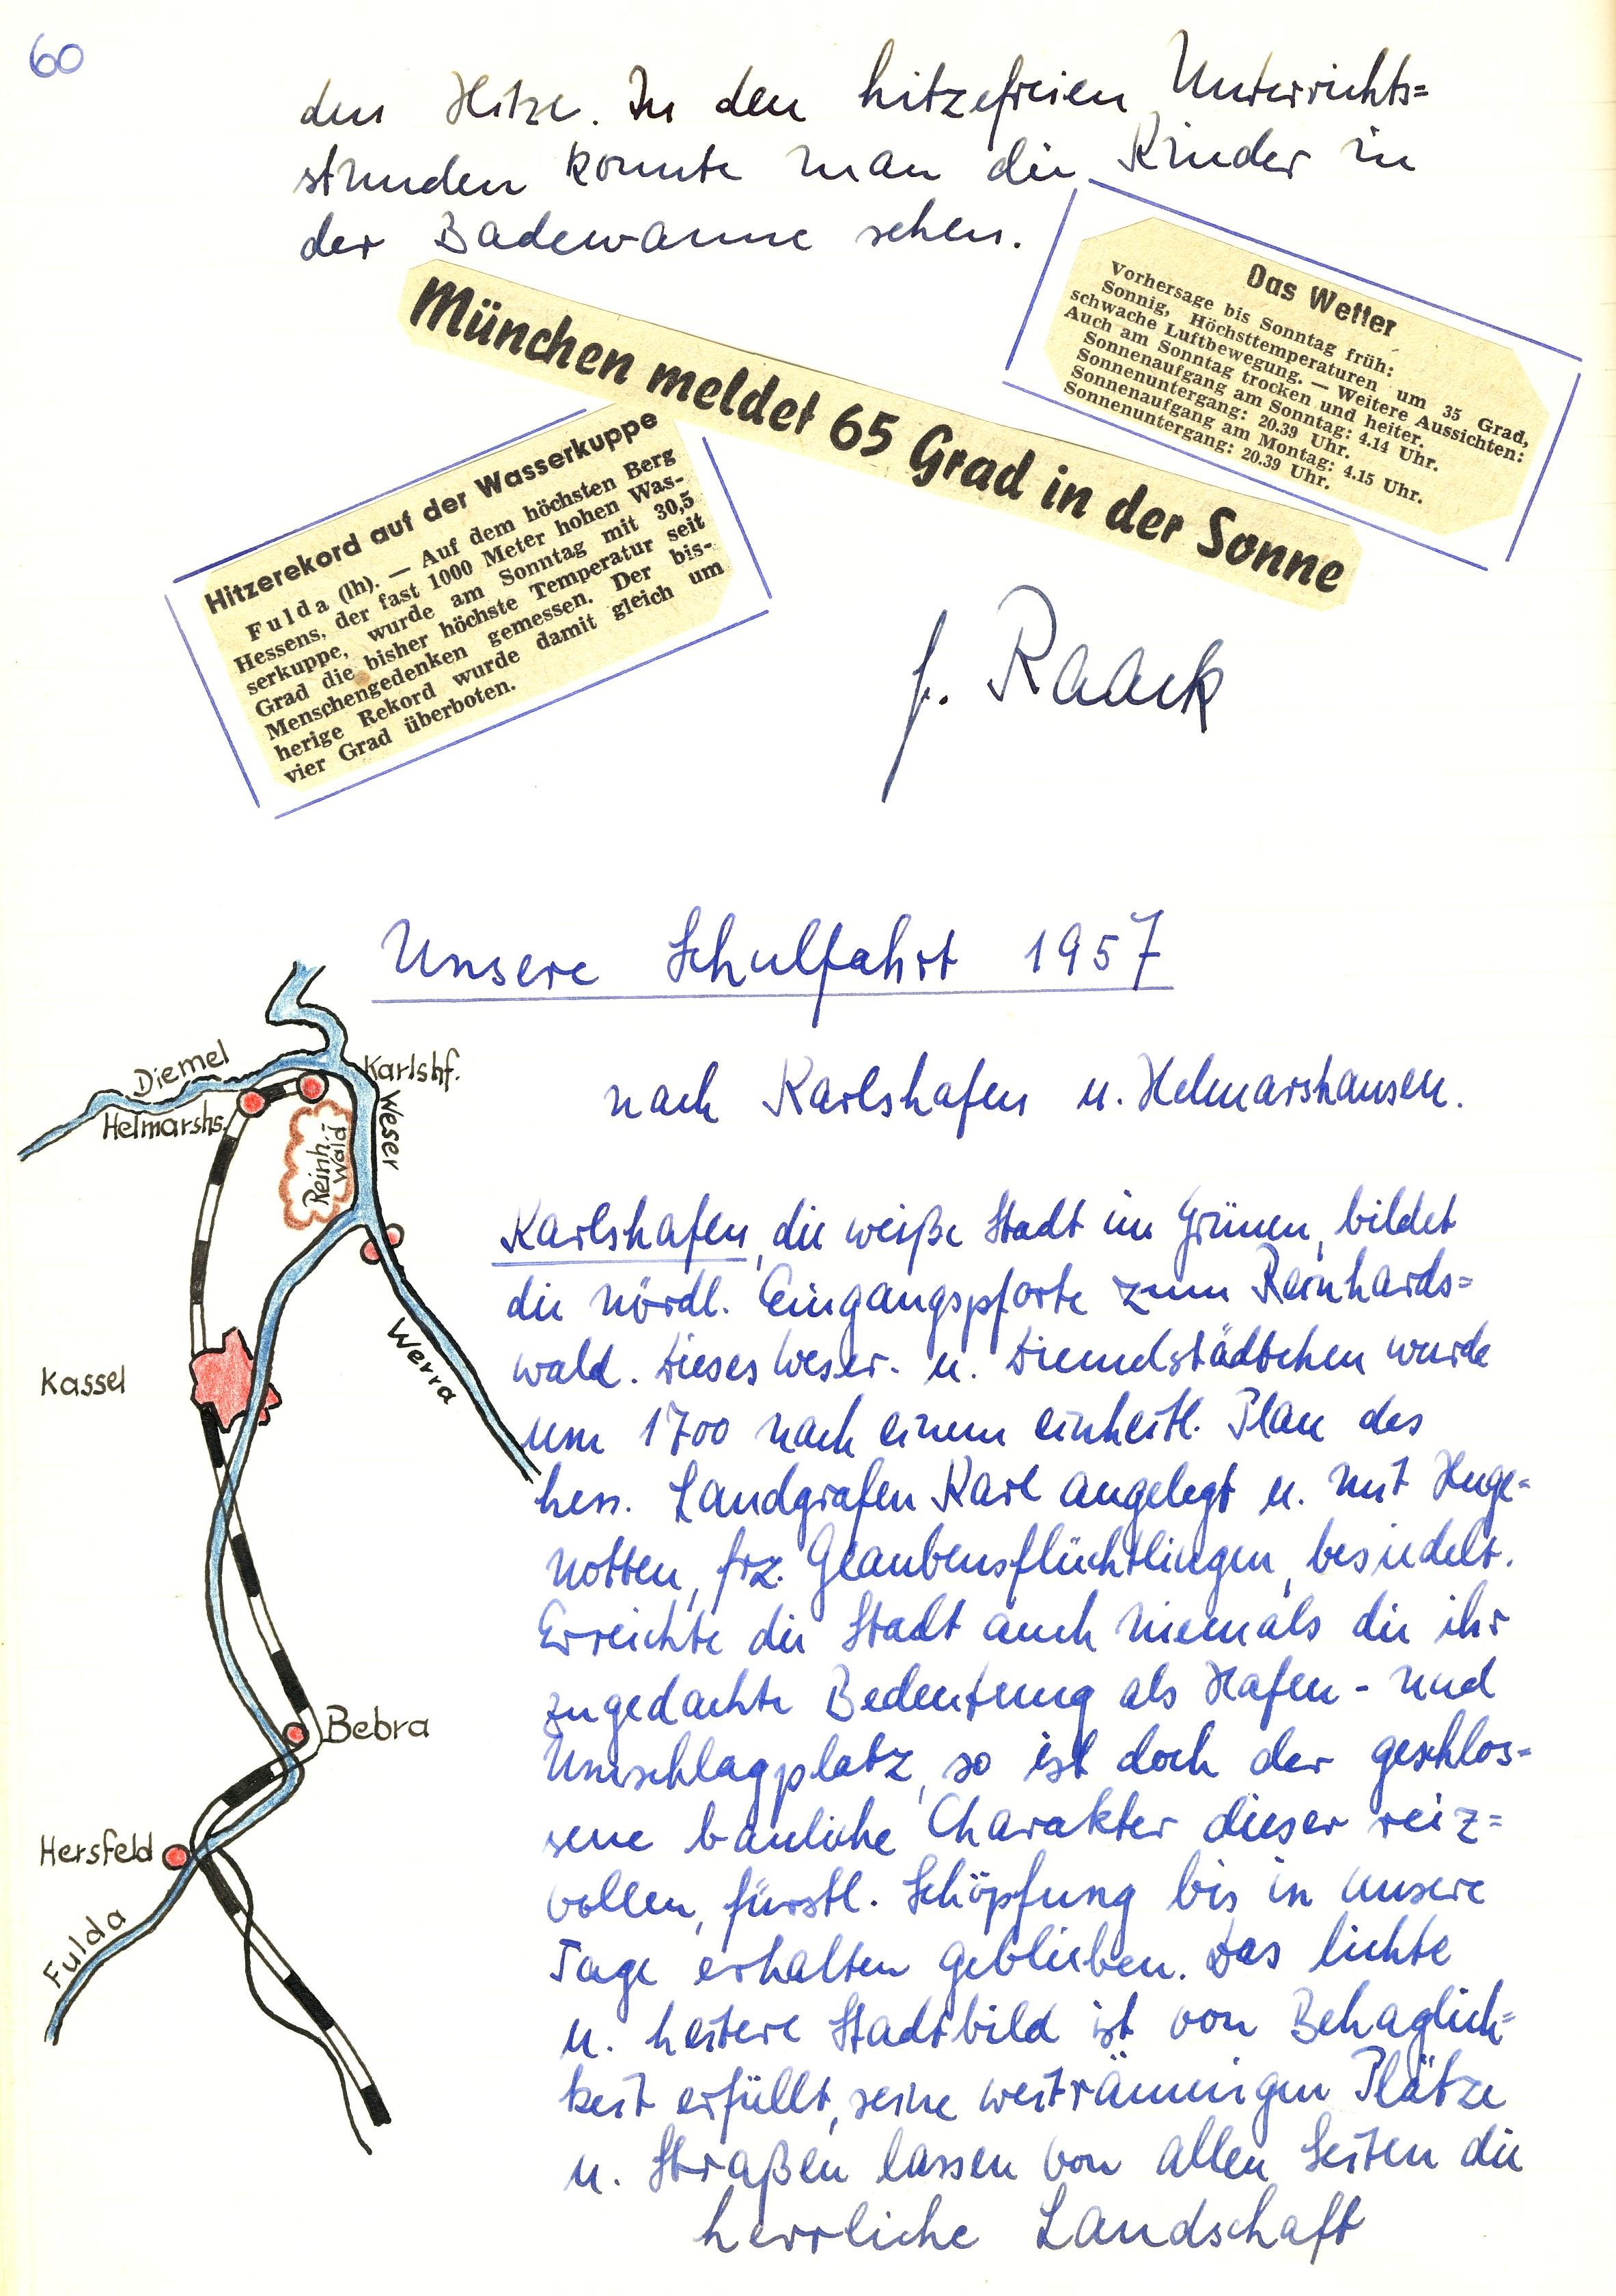 60
den Hitze. In den hitzefreien Unterrichts=
stunden konnte man die Kinder in
der Badewanne sehen.
Das Wetter
Vorhersage bis Sonntag früh:
Sonnig, Höchsttemperaturen um 35 Grad,
schwache Luftbewegung. — Weitere Aussichten:
Auch am Sonntag trocken und heiter.
Sonnenaufgang am Sonntag: 4.14 Uhr.
Sonnenuntergang: 20.39 Uhr.
Sonnenaufgang am Montag: 4.15 Uhr.
Sonnenuntergang: 20.39 Uhr.
München meldet 65 Grad in der Sonne
Hitzerekord auf der Wasserkuppe
Fulda (lh). — Auf dem höchsten Berg
Hessens, der fast 1000 Meter hohen Was-
serkuppe, wurde am Sonntag mit 30,5
Grad die bisher höchste Temperatur seit
Menschengedenken gemessen. Der bis-
herige Rekord wurde damit gleich um
vier Grad überboten.
f. Raack
Unsere Schulfahrt 1957
nach Karlshafen u. Helmarshausen.
Diemel
Karlshf.
Helmarshs.
Weser
Reinh.-
Wald
Werra
Kassel
Bebra
Hersfeld
Fulda
Karlshafen, die weiße Stadt im Grünen, bildet
die nördl. Eingangspforte zum Reinhards=
wald. Dieses Weser- u. Diemelstädtchen wurde
um 1700 nach einem einheitl. Plan des
hess. Landgrafen Karl angelegt u. mit Huge-
notten, frz. Glaubensflüchtlingen, besiedelt.
Erreichte die Stadt auch niemals die ihr
zugedachte Bedeutung als Hafen- und
Umschlagplatz, so ist doch der geschlos-
sene bauliche Charakter dieser reiz=
vollen, fürstl. Schöpfung bis in unsere
Tage erhalten geblieben. Das lichte
u. heitere Stadtbild ist von Behaglich=
keit erfüllt, seine weiträumigen Plätze
u. Straßen lassen von allen Seiten die
herrliche Landschaft